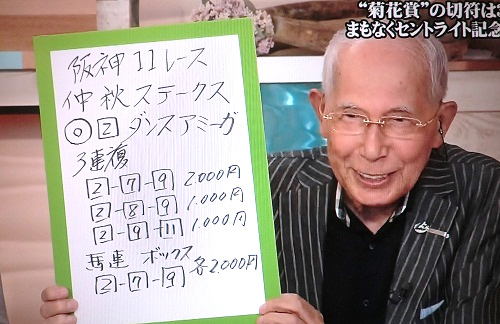 "菊花賞"の切符は
まもなくセントライト記念
阪神11レース
仲秋ステークス
◎ 2 ダンスアミーガ
3連複
2-7-9 2,000円
2-8-9 1,000円
2-9-11 1,000円
馬連 ボックス
2-7-9 各2,000円